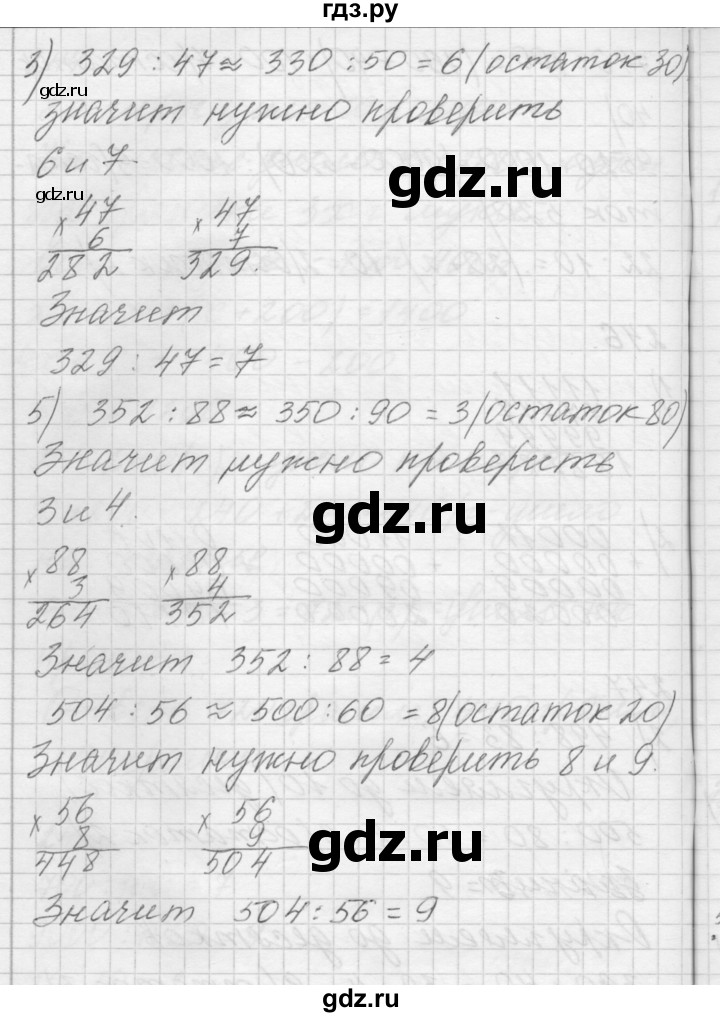 гдз.ру
3) 329 : 47 ≈ 330 : 50 = 6 (остаток 30)
gdz.ru
значит нужно проверить
6 и 7
gdz.ru
gdz.ru
× 47 × 47
6 7
282 329.
Значит
329 : 47 = 7
5) 352 : 88 ≈ 350 : 90 = 3 (остаток 80)
Значит нужно проверить
3 и 4.
gdz.ru
× 88 × 88
3 4
264 352
Значит 352 : 88 = 4
504 : 56 ≈ 500 : 60 = 8 (остаток 20)
Значит нужно проверить 8 и 9.
× 56 × 56
8 9
gdz.ru
448 504
Значит 504 : 56 = 9
gdz.ru